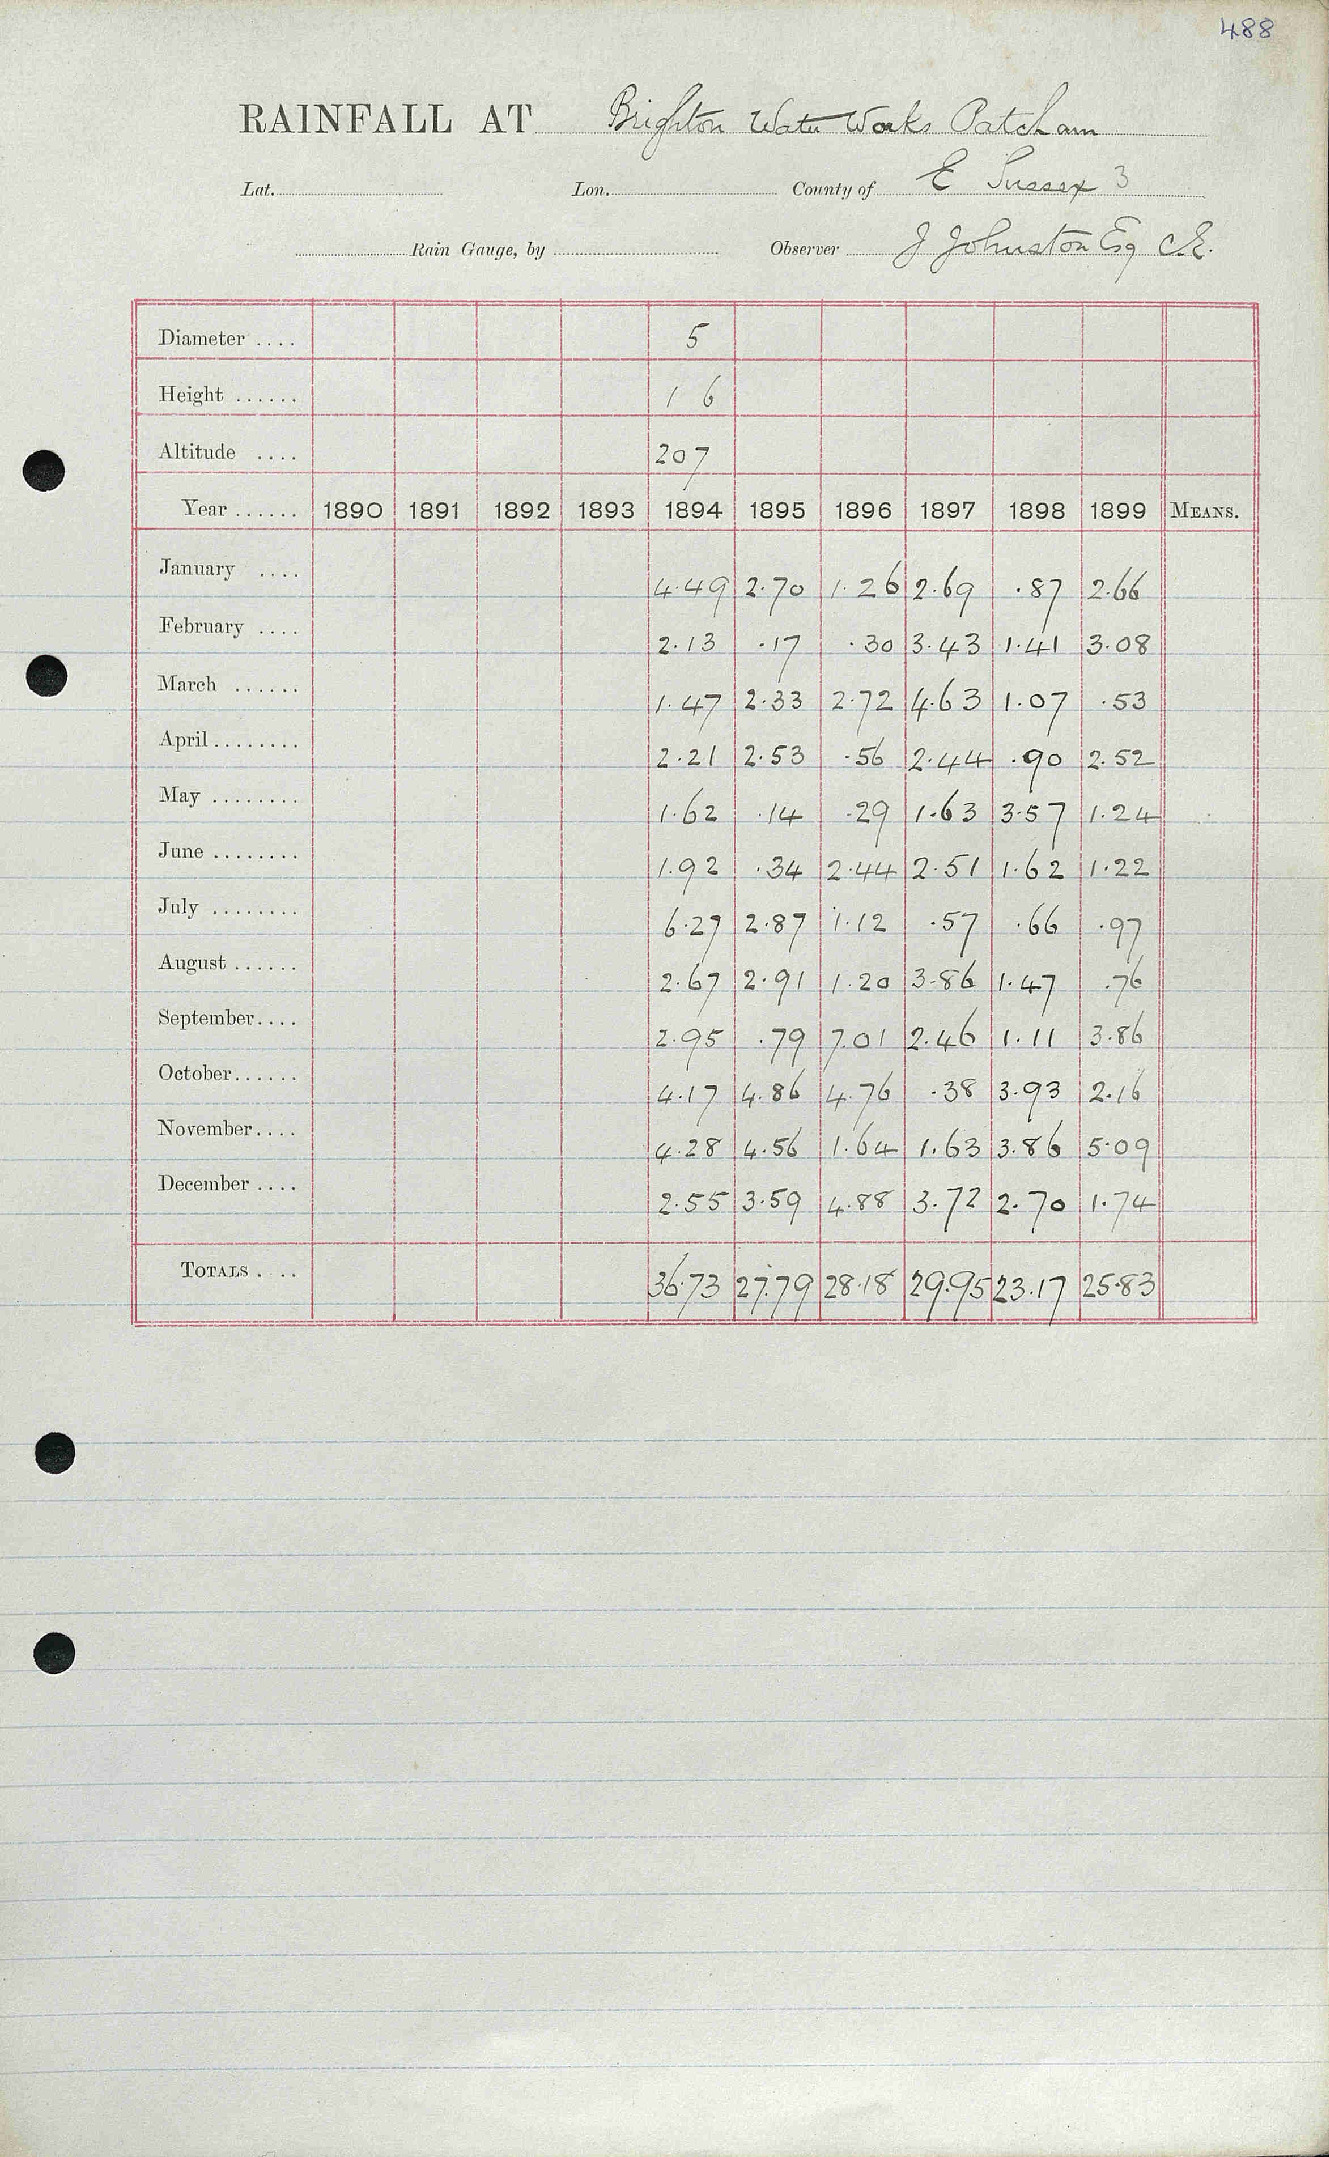 488
RAINFALL AT Brighton Water Works Patcham
Lat. Lon. County of E Sussex 3
Rain Gauge, by Observer J Johnston Esq C.E.
Diameter .... 5
Height ...... 1 6
Altitude .... 207
Year ...... 1890 1891 1892 1893 1894 1895 1896 1897 1898 1899 MEANS.
January .... 4.49 2.70 1.26 2.69 .87 2.66
February .... 2.13 .17 .30 3.43 1.41 3.08
March ...... 1.47 2.33 2.72 4.63 1.07 .53
April ........ 2.21 2.53 .56 2.44 .90 2.52
May ........ 1.62 .14 .29 1.63 3.57 1.24
June ........ 1.92 .34 2.44 2.51 1.62 1.22
July ........ 6.27 2.87 1.12 .57 .66 .97
August ...... 2.67 2.91 1.20 3.86 1.47 .76
September.... 2.95 .79 7.01 2.46 1.11 3.86
October...... 4.17 4.86 4.76 .38 3.93 2.16
November.... 4.28 4.56 1.64 1.63 3.86 5.09
December .... 2.55 3.59 4.88 3.72 2.70 1.74
TOTALS .... 36.73 27.79 28.18 29.95 23.17 25.83